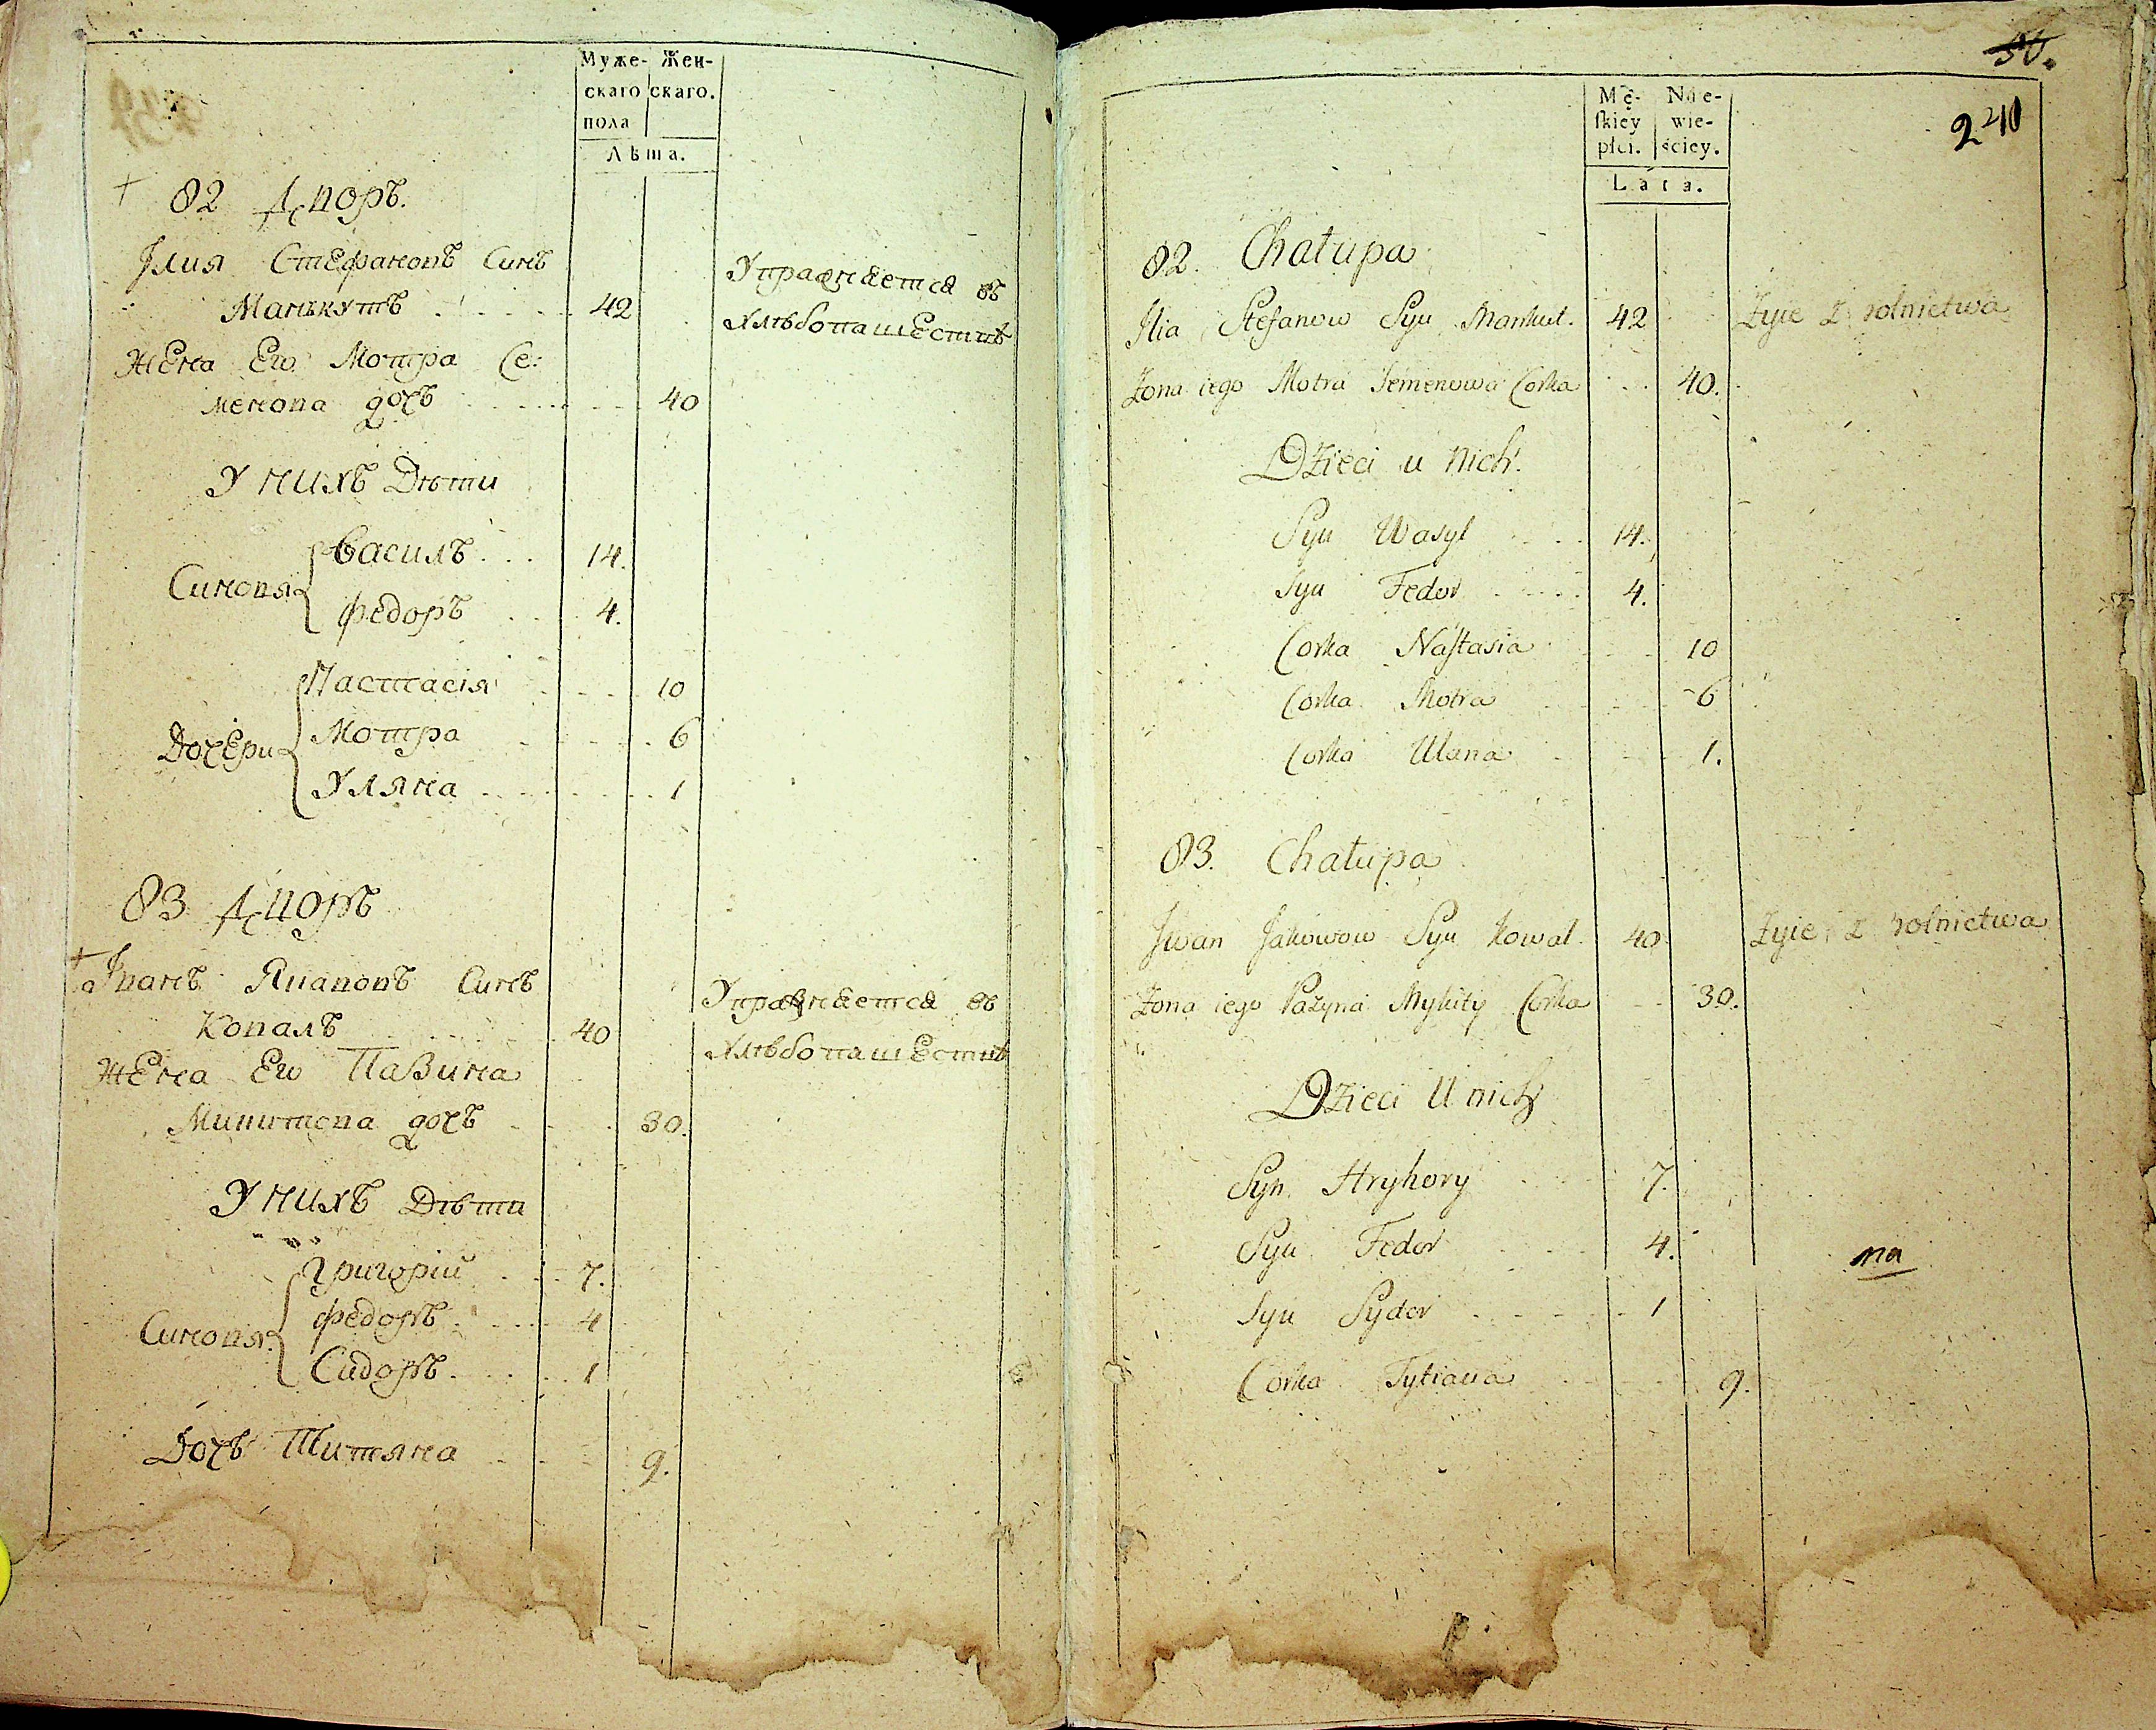 Муже- Жен-
скаго скаго.
пола
Лѣта.
+ 82 Дворъ.
Илия Стефановъ Синъ
Манькутъ 42
Упражняется въ
Хлѣбопашестве
Жена Ево Мотра Се:
менова дочъ 40
У нихъ Дѣти
Синовя
Василъ 14.
Федоръ 4.
Дочери
Настасія 10
Мотра 6
Уляна 1
83 Дворъ
+ Иванъ Яцановъ Синъ
Ковалъ 40
Упражняется въ
Хлѣбопашестве
Жена Ево Пазина
Микитова дочъ 30.
У нихъ Дѣти
Синовя
Григорій 7.
Федоръ 4
Сидоръ 1
Дочъ Титяна 9.
50.
240
Mę- Nie-
ſkiey wie-
płci. ściey.
Lata.
82. Chałupa
Ilia Stefanow Syn Mankut. 42 Zyie z rolnictwa
Zona iego Motra Semenowa Corka 40.
Dzieci u nich.
Syn Wasyl 14.
Syn Fedor 4.
Corka Naſtasia 10
Corka Motra 6
Corka Ulana 1.
83. Chałupa
Iwan Jakowow Syn Kowal. 40 Zyie z rolnictwa
Zona iego Pazyna Mykity Corka 30.
Dzieci U nich
Syn Hryhory 7.
Syn Fedor 4.
na
Syn Sydor 1
Corka Tytiana 9.